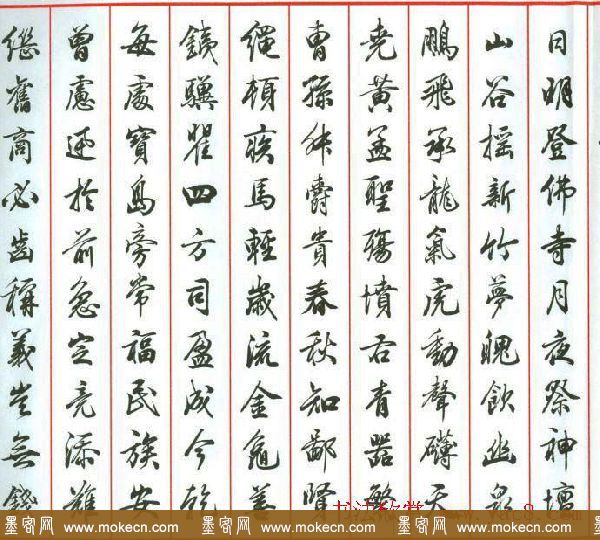 日明登佛寺月夜祭神壇
山谷摇新竹夢魄飲幽泉
鵬飛承龍氣虎動聲礴天
堯黃孟聖殤墳右青器繁
曹孫爵貴春秋知鄙賢
繩頓疾馬輕歲流金龜善
鐵驥瞿四方司盈成今乾
每處寶島旁常福民族安
曾慮迺於前急定亮添難
繼舊商必齒稱義豈無錢
书法欣赏
墨客网 www.mokecn.com 墨客网 www.mokecn.com 墨客网 www.mokecn.com